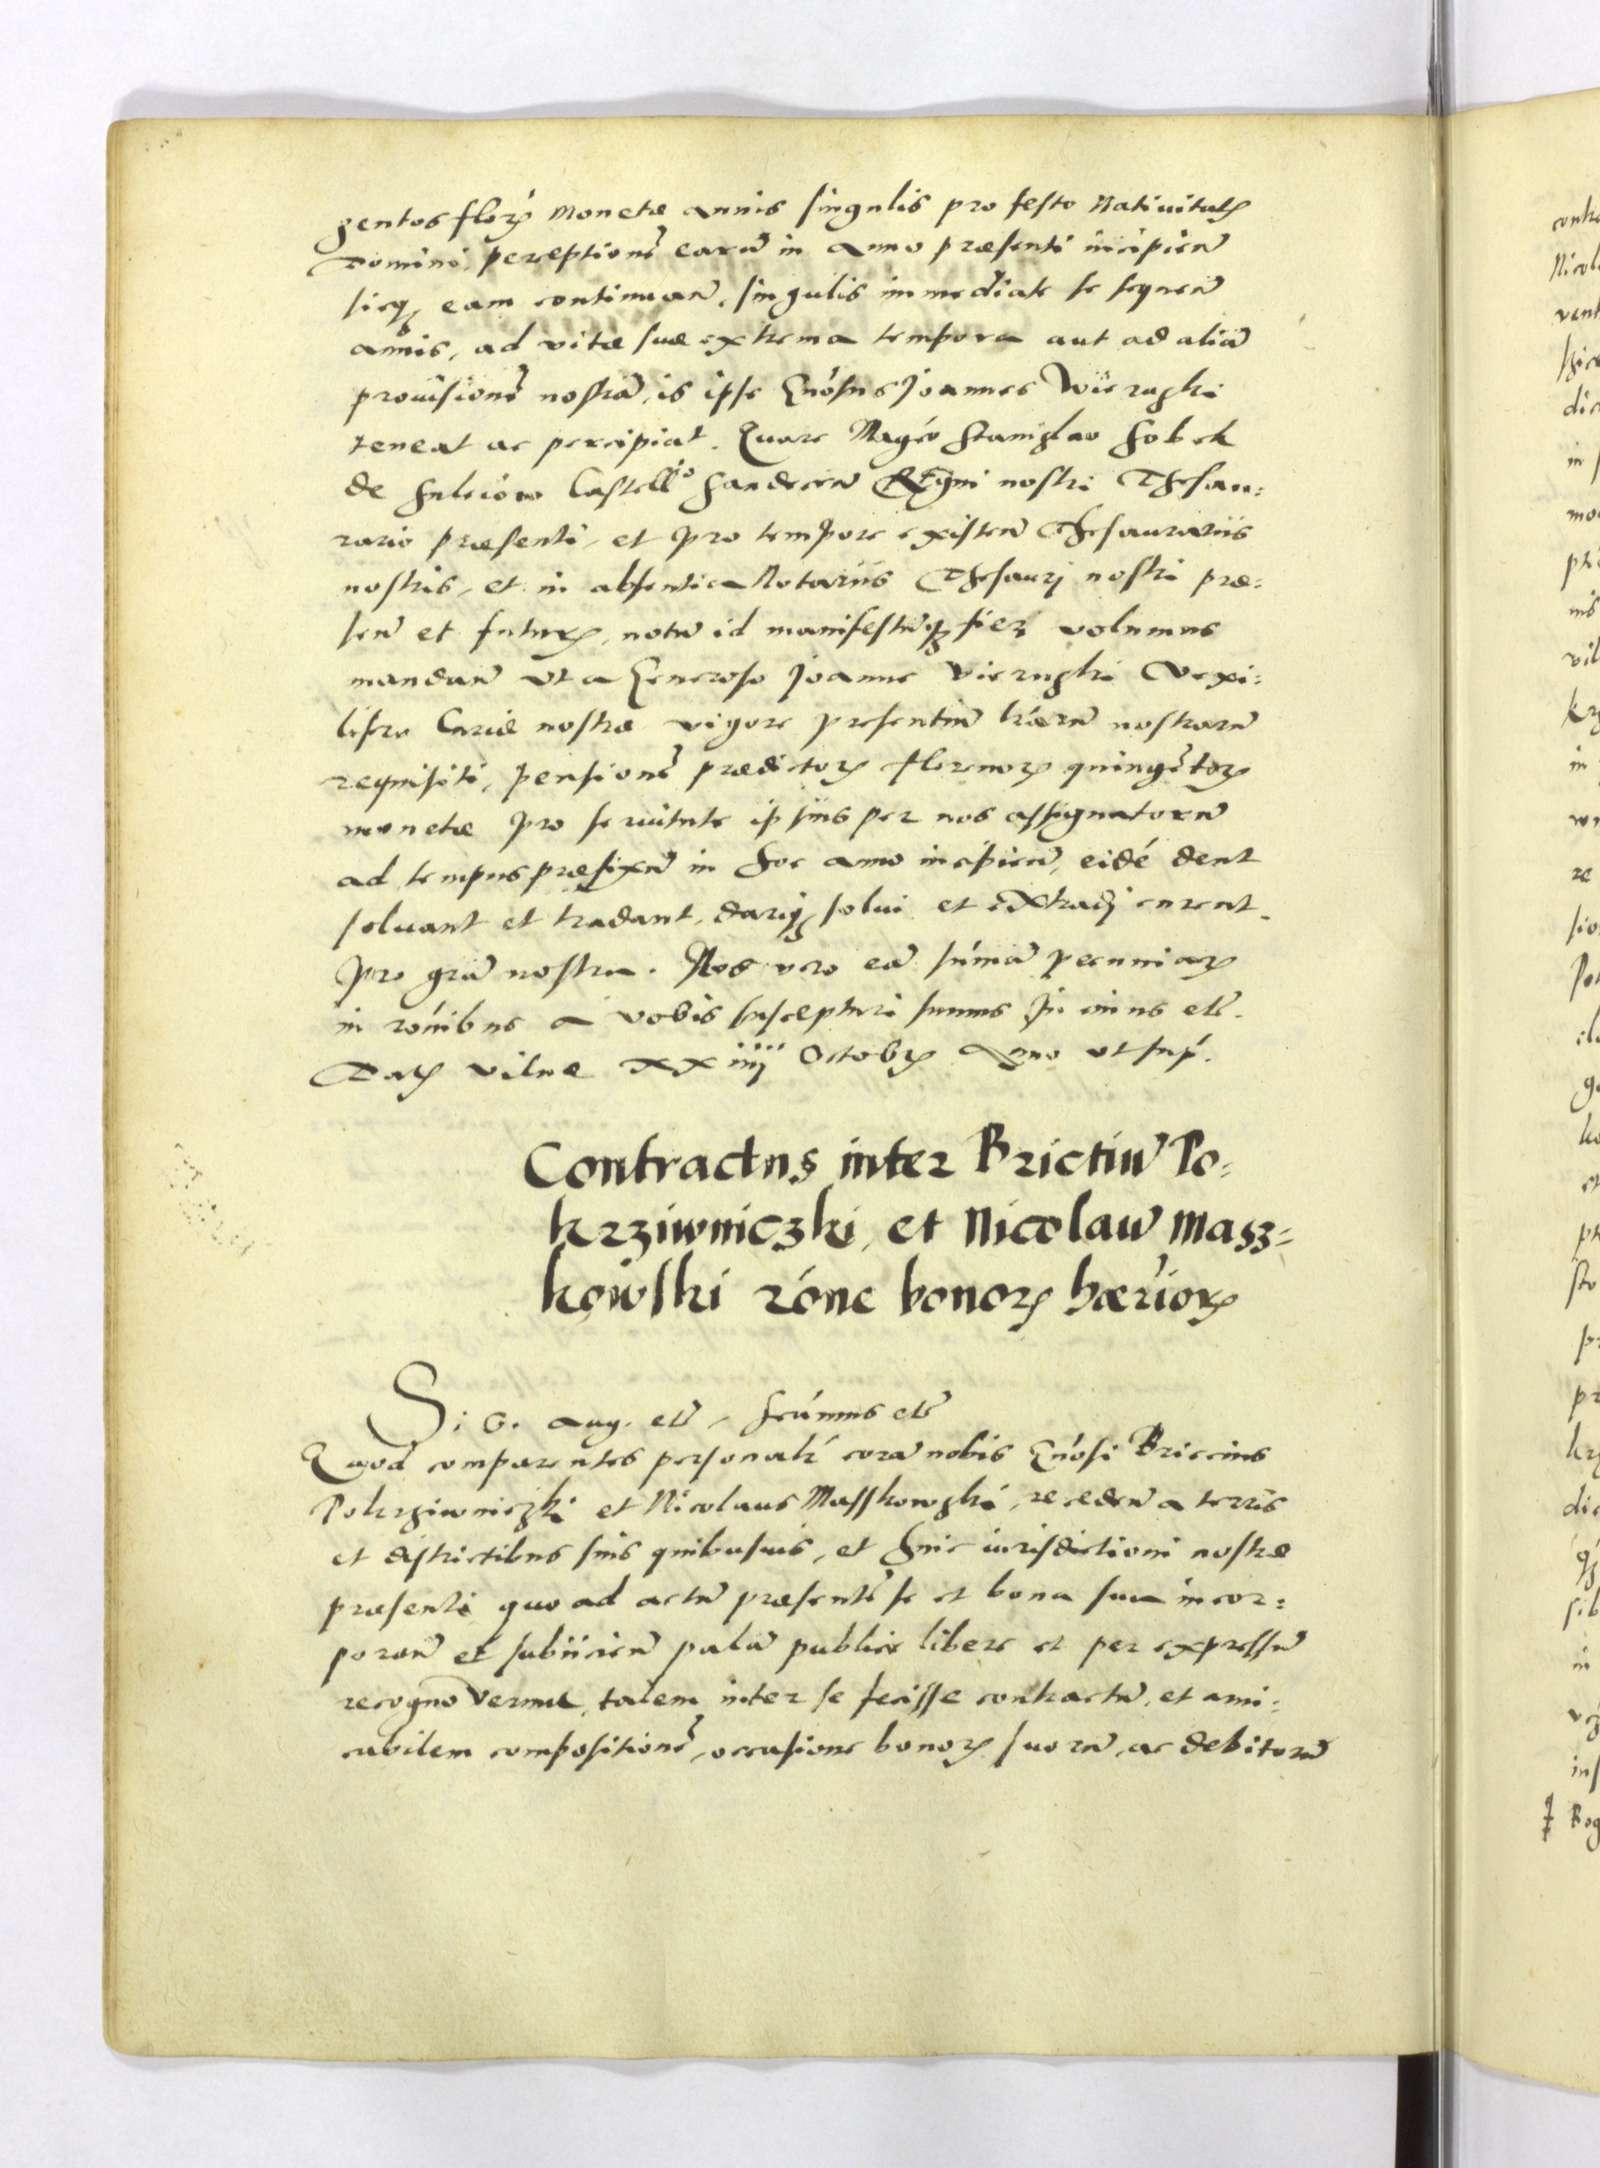 gentos florꝝ monetæ annis singulis pro festo Natiuitatꝭ
Domini, perceptionẽ earũ in anno præsenti incipien̄
sicqꝫ eam continuan̄, singulis immediate se sequen̄
annis, ad vitæ suæ extrema tempora aut ad aliã
prouisionẽ nostrã, is ipse Gñosus Joannes Wierzgski
teneat ac percipiat. Quare Magco Stanislao Sobek
de Suleiow Castellõ Sandecen̄ Regni nostri Thesau:
rario præsenti, et pro tempore existen̄ Thesaurariis
nostris, et in absentia Notariis Thesaurj nostri præ:
sen̄ et futurꝭ, notũ id manifestũqꝫ fieri volumus
mandan̄ vt a Generoso Joanne Vierzgski Vexi:
lifero Curiæ nostræ vigore presentiũ lrãrũ nostrarũ
requisiti, pensionẽ prædictorꝝ florenorꝝ quingẽtorꝝ
monetæ pro seruitute ipsius per nos assignatorũ
ad tempus præfixũ in hoc anno incipien̄, eidé dent
soluant et tradant, dariqꝫ solui et extradj curent
pro grã nostra. Nos vero eã sũmã pecuniarꝝ
in rõnibus a vobis suscepturi sumus In cuius etc̄.
Datꝭ Vilnæ XX iiij Octobrꝭ Anno vt sup̃.
Contractus inter Brictiũ Po:
krziwniczki, et Nicolaũ Masz-
kowski rõne bonorꝝ hæríorꝝ
S: G. Aug. etc̄, Scímus etc̄
Quod comparentes personalr̃ corã nobis Gñosi Briccius
Pokrziwniczki et Nicolaus Masskowski, receden̄ a terris
et districtibus suis quibusuis, et huic iurisdictioni nostræ
præsenti quo ad actũ præsentẽ se et bona sua incor:
poran̄ et subiicien̄ palã publice libere et per expressũ
recognouerunt, talem inter se fecisse contractũ, et ami:
cabilem compositionẽ, occasione bonorꝝ suorũ, ac debitorũ